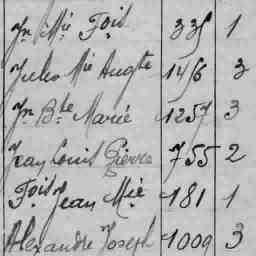 Jn Mie Fois 335 1
Jules Mie Augte 1456 3
Jn Bte Marie 1257 3
Jean Louis Pierre 755 2
Fois Jean Mie 181 1
Alexandre Joseph 1009 3